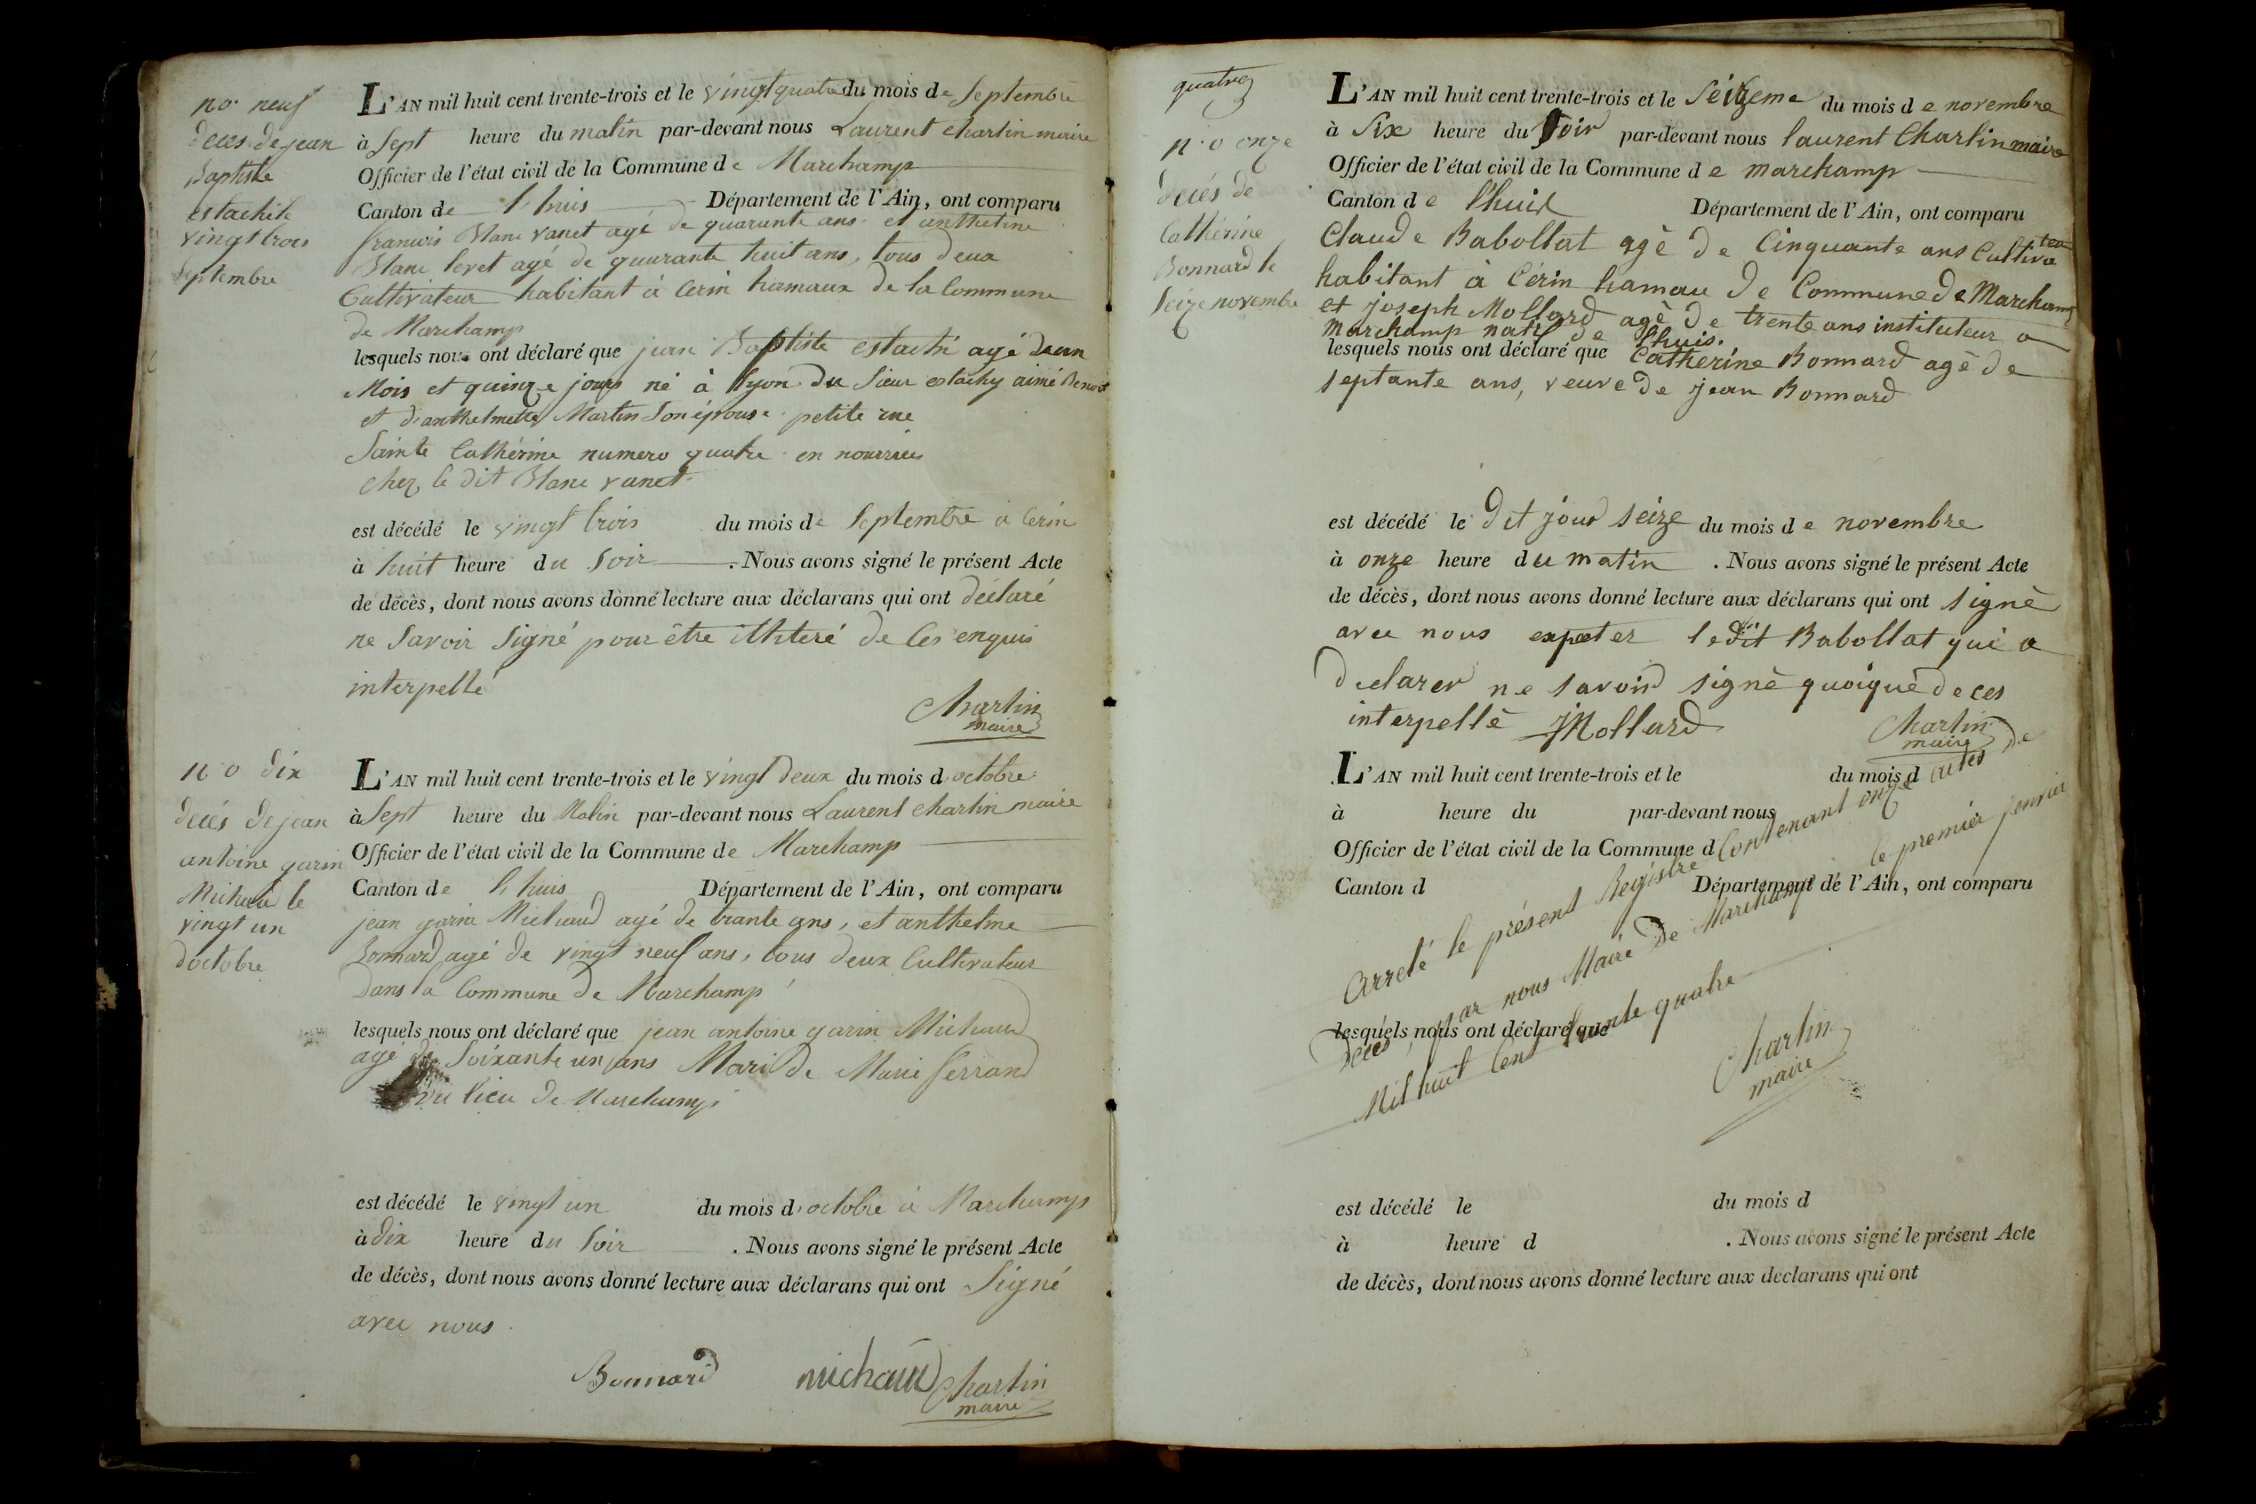 no. neuf
décés de jean
Baptiste
estachih
vingt trois
septembre
L'AN mil huit cent trente-trois et le vingt quatre du mois de Septembre
à Sept heure du matin par-devant nous Laurent Charlin maire
Officier de l'état civil de la Commune de Marchamp
Canton de l'huis Département de l'Ain, ont comparu
francois Blanc vanet agé de quarante ans et anthelme
Blanc levet agé de quarante huit ans, tous deux
Cultivateur habitant à Cerin hamaux de la Commune
de Marchamp
lesquels nous ont déclaré que jean Baptiste estachi agé d'un
Mois et quinze jours né à lyon du Sieur estachy aimé Benoit
et d'anthelmette Martin Son épouse petite rue
Sainte Cathérine numero quatre en nourrice
chez le dit Blanc vanet.
est décédé le vingt trois du mois de Septembre à Cerin
à huit heure du Soir . Nous avons signé le présent Acte
de décès, dont nous avons donné lecture aux déclarans qui ont déclaré
ne Savoir Signé pour être illiteré de Ces enquis
interpellé
Charlin
maire
no dix
décés de jean
antoine garin
Michaud le
vingt un
doctobre
L'AN mil huit cent trente-trois et le vingt deux du mois d'octobre
à Sept heure du Matin par-devant nous Laurent Charlin maire
Officier de l'état civil de la Commune de Marchamp
Canton de l'huis Département de l'Ain, ont comparu
jean garin Michaud agé de trante ans, et anthelme
Bonnard agé de vingt neuf ans, tous deux Cultivateur
Dans la Commune de Marchamp
lesquels nous ont déclaré que jean antoine garin Michaud
agé de Soixante un ans Mari de Marie ferrand
du lieu de Marchamp
est décédé le vingt un du mois d'octobre à Marchamp
à dix heure du Soir . Nous avons signé le présent Acte
de décès, dont nous avons donné lecture aux déclarans qui ont Signé
avec nous.
Bonnard michaud Charlin
maire
quatre
no onze
Décés de
Cathérine
Bonnard le
Seize novembre
L'AN mil huit cent trente-trois et le Seizeme du mois de novembre
à Six heure du Soir par-devant nous laurent Charlin maire
Officier de l'état civil de la Commune de marchamp
Canton de l'huis Département de l'Ain, ont comparu
Claude Babollat agè de Cinquante ans Cultivateu
habitant à Cérin hamau de Commune de Marchamp
et joseph Mollard agè de trente ans instituteur a
Marchamp natif de lhuis.
lesquels nous ont déclaré que Catherine Bonnard agè de
septante ans, veuve de jean Bonnard
est décédé le dit jour seize du mois de novembre
à onze heure du matin . Nous avons signé le présent Acte
de décès, dont nous avons donné lecture aux déclarans qui ont signè
avec nous expeter ledit Babollat qui a
declarer ne savoir signè quoiquè de ces
interpellè JMollard Charlin
maire
L'AN mil huit cent trente-trois et le du mois d
à heure du par-devant nous
Officier de l'état civil de la Commune d
Canton d Département de l'Ain, ont comparu
Arreté le présent Registre Contenant onze actes de
Décés, par nous Maire De Marchamp le premier janvier
Mil huit Cent trente quatre
Charlin
maire
lesquels nous ont déclaré que
est décédé le du mois d
à heure d . Nous avons signé le présent Acte
de décès, dont nous avons donné lecture aux déclarans qui ont